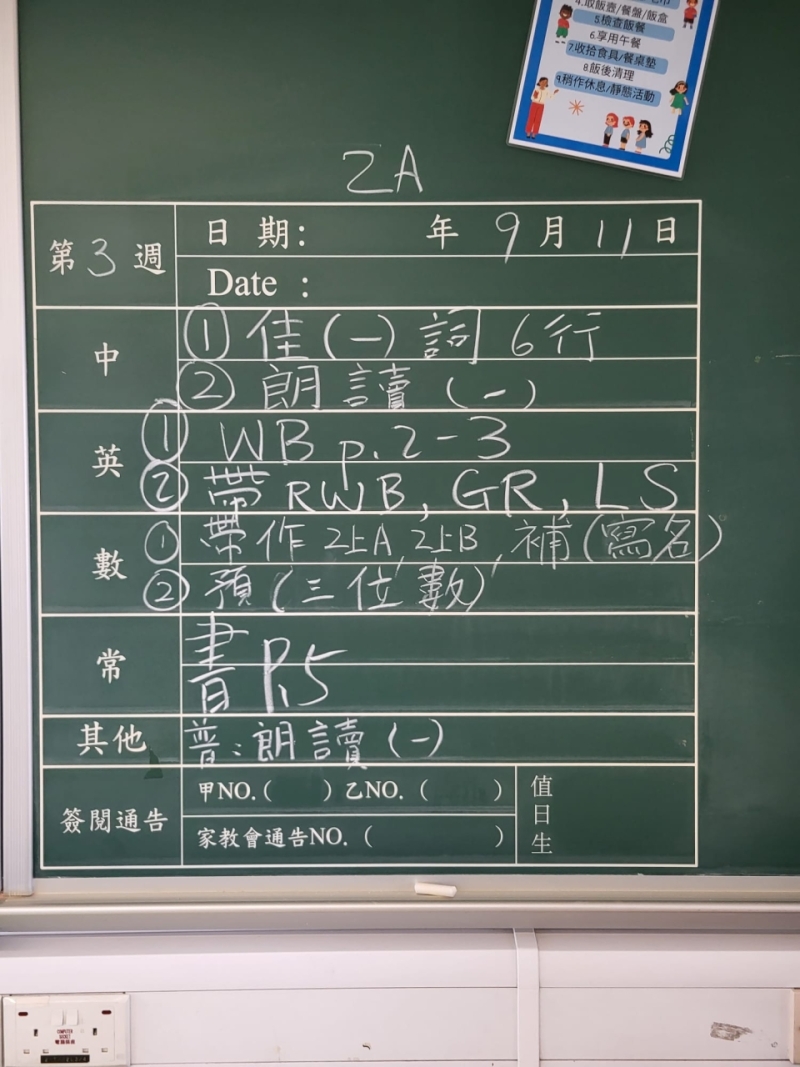 4.取飯壺/餐盤/飯盒
5.檢查飯餐
6.享用午餐
7.收拾食具/餐桌墊
8.飯後清理
9.稍作休息/靜態活動
2A
第3週
日期: 年9月11日
Date :
中
①佳(一)詞6行
②朗讀(一)
英
①WB p.2-3
②帶RWB, GR, LS
數
①帶作2上A, 2上B, 補(寫名)
②預(三位數)
常
書P.5
其他
普:朗讀(一)
簽閱通告
甲NO.( )乙NO.( )
家教會通告NO.( )
值日生
COMPUTER